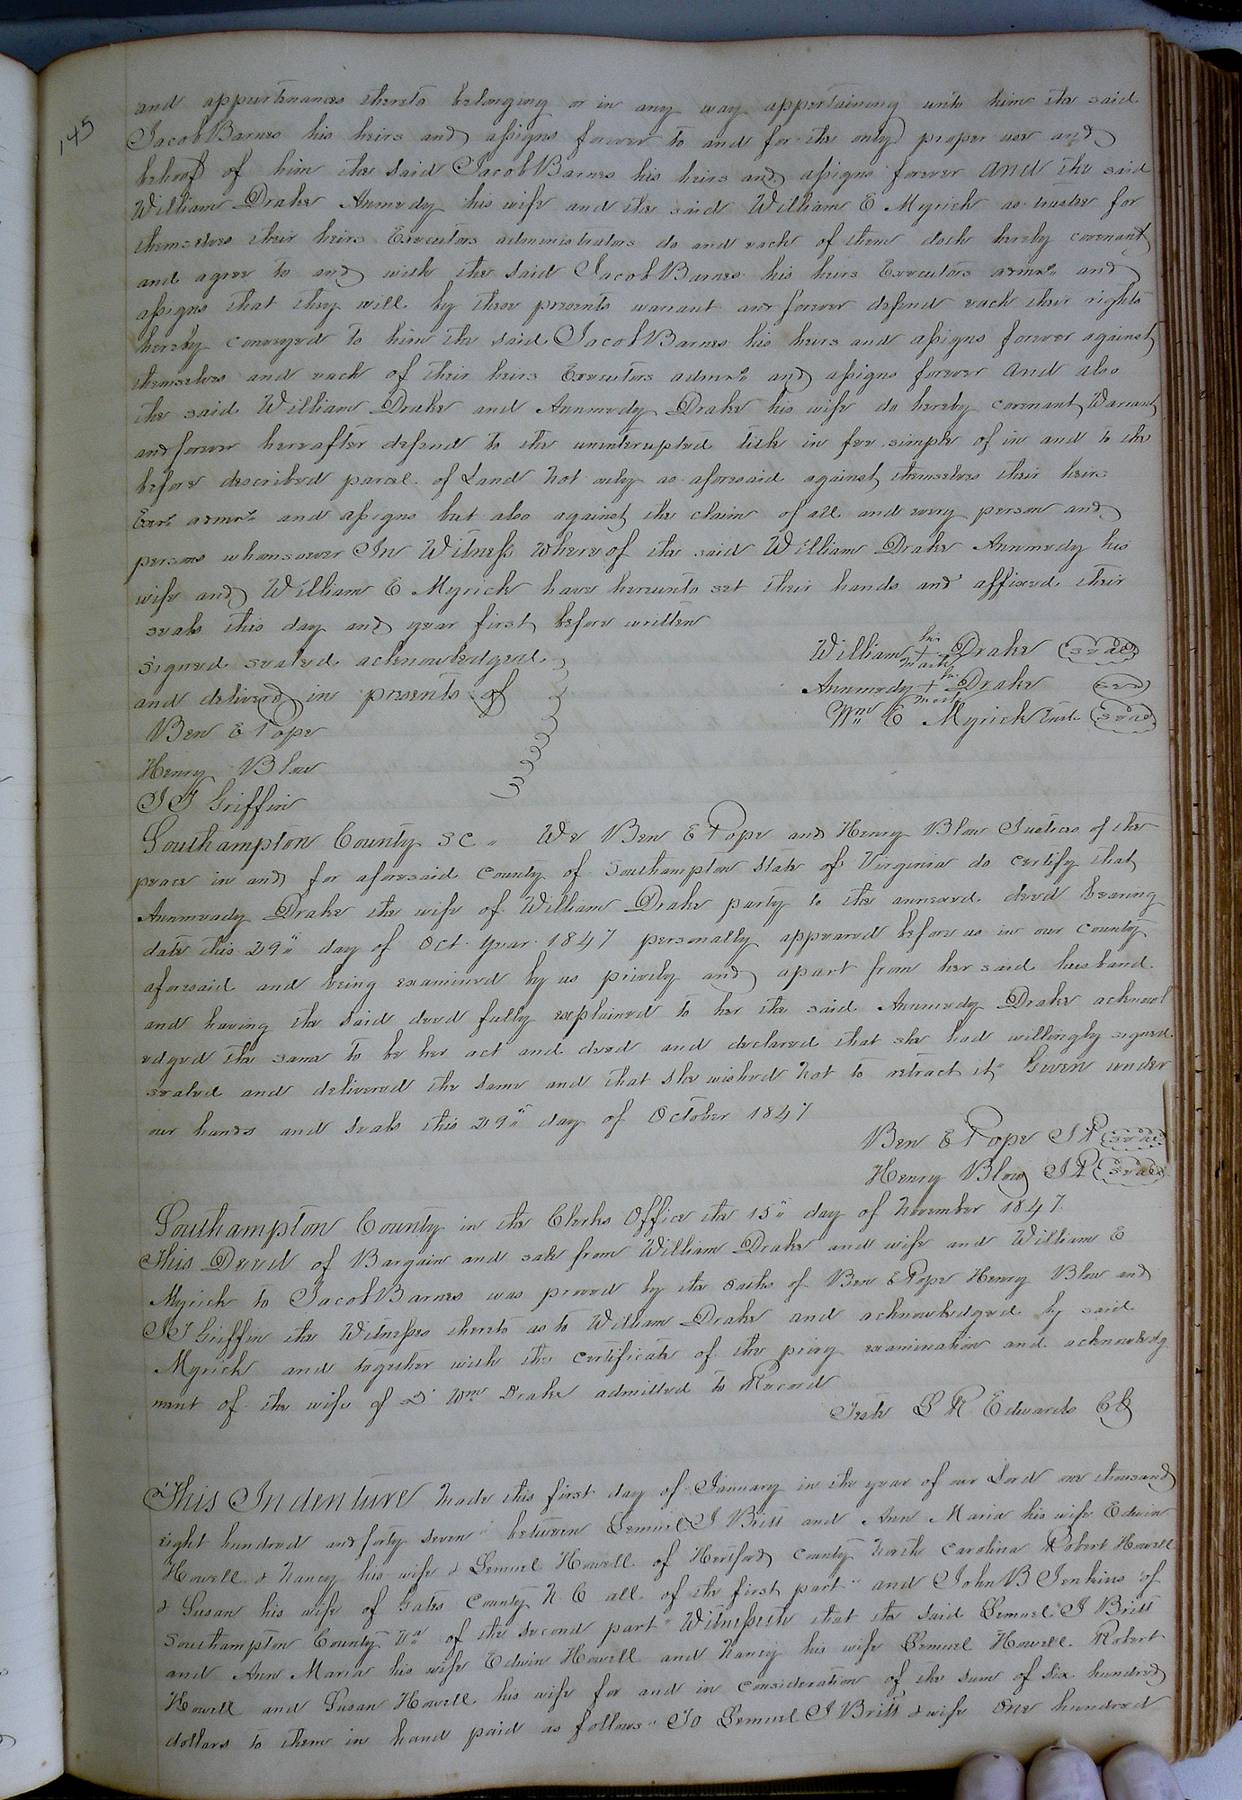 145
and appurtenances thereto belonging or in any way appertaining unto him the said
Jacob Barnes his heirs and assigns forever to and for the only proper use and
behoof of him the said Jacob Barnes his heirs and assigns forever And the said
William Drake Annmedy his wife and the said William E Myrick as trustee for
themselves their heirs Executors administrators do and each of them doth hereby covenant
and agree to and with the said Jacob Barnes his heirs Executors admrs and
assigns that they will by these presents warrant and forever defend each their rights
hereby conveyed to him the said Jacob Barnes his heirs and assigns forever against
themselves and each of their heirs Executors admrs and assigns forever And also
the said William Drake and Annmedy Drake his wife do hereby covenant Warrant
and forever hereafter defend to the uninterupted title in fee simple of in and to the
before described parcel of Land Not only as aforesaid against themselves their heirs
Exrs admrs and assigns but also against the claim of all and every person and
persons whomsoever In Witness whereof the said William Drake Annmedy his
wife and William E Myrick have hereunto set their hands and affixed their
seals this day and year first before written
signed sealed acknowledged
and delivered in presents of
Ben E Pope
Henry Blow
J J Griffin
William his + mark Drake seal
Annmedy her + mark Drake seal
Wm E Myrick Trust. seal
Southampton County SC We Ben E Pope and Henry Blow Justices of the
peace in and for aforesaid County of Southampton State of Virginia do certify that
Annmeady Drake the wife of William Drake party to the annexed deed bearing
date this 29" day of Oct. year 1847 personally appeared before us in our County
aforesaid and being examined by us privily and apart from her said husband
and having the said deed fully explained to her the said Annmedy Drake acknowl
edged the same to be her act and deed and declared that she had willingly signed
sealed and delivered the same and that she wished Not to retract it Given under
our hands and seals this 29" day of October 1847
Ben E Pope JP seal
Henry Blow JP seal
Southampton County in the Clerks Office the 15" day of November 1847
This Deed of Bargain and sale from William Drake and wife and William E
Myrick to Jacob Barnes was proved by the oaths of Ben E Pope Henry Blow and
J J Griffin the Witnesses thereto as to William Drake and acknowledged by said
Myrick and together with the certificate of the privy examination and acknowledg
ment of the wife of sd Wm Drake admitted to Record
Teste L R Edwards Clk
This Indenture Made this first day of January in the year of our Lord one thousand
eight hundred and forty seven between Lemuel J Britt and Ann Maria his wife Edwin
Howell & Nancy his wife & Lemuel Howell of Hertford County North Carolina Robert Howell
& Susan his wife of Gates County N. C all of the first part and John B Jenkins of
Southampton County Va of the second part Witnesseth that the said Lemuel J Britt
and Ann Maria his wife Edwin Howell and Nancy his wife Lemuel Howell Robert
Howell and Susan Howell his wife for and in consideration of the sum of six hundred
dollars to them in hand paid as follows To Lemuel J Britt & wife one hundred